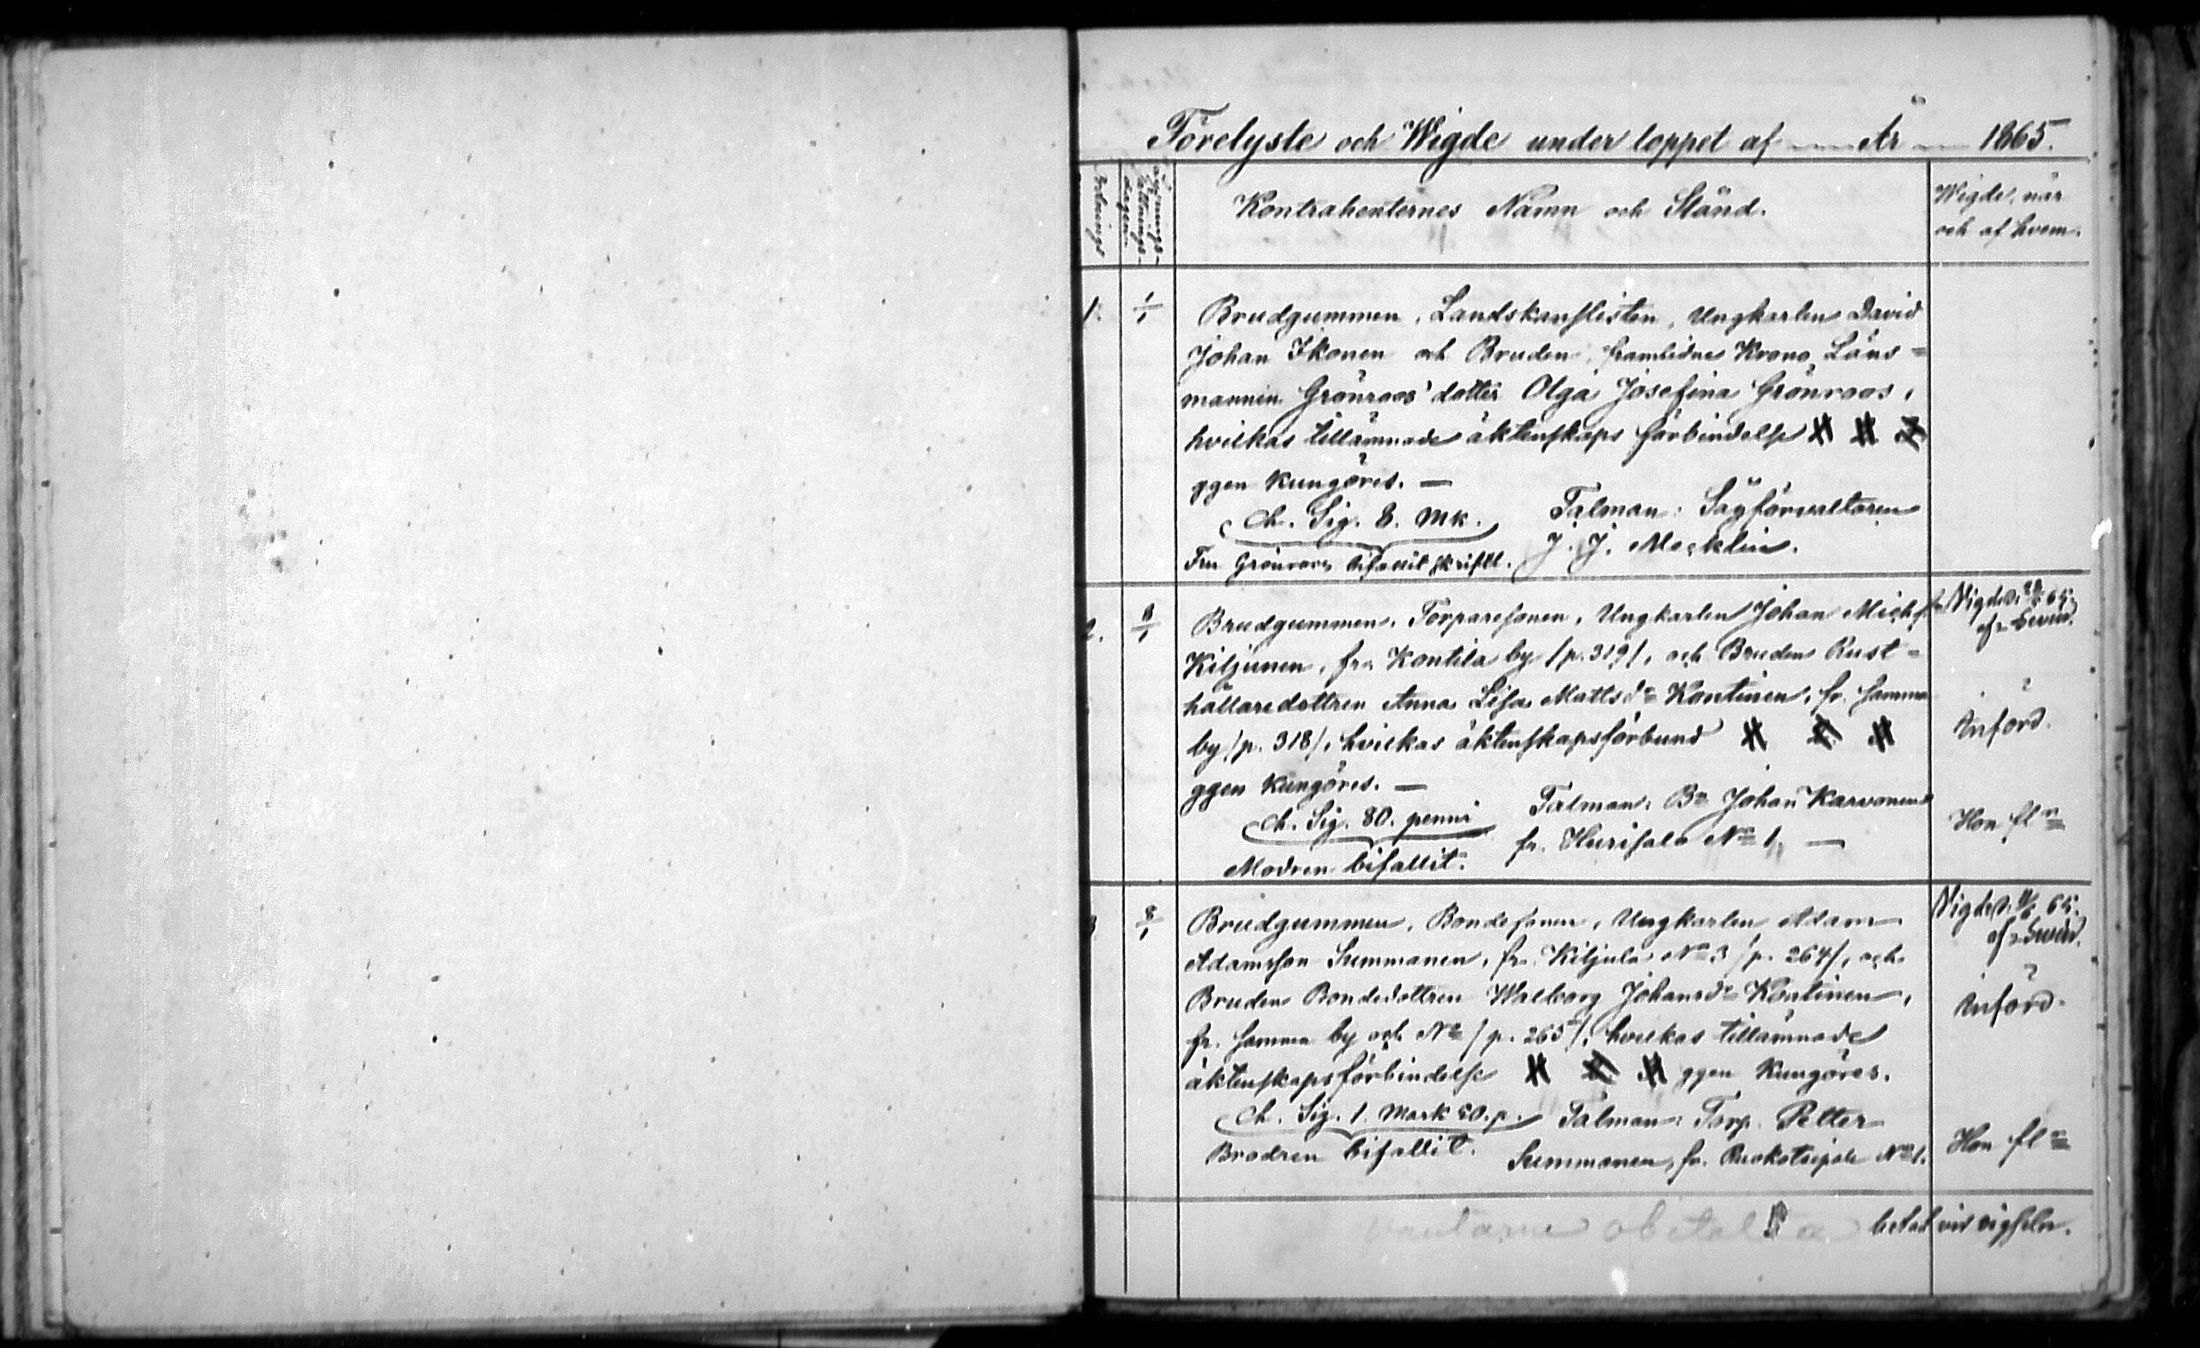 Förelyste och Wigde under loppet af År 1865.
Kontrahenternes Namn och Stånd.
Wigde, när
och af hvem.
1. 1/1 Brudgummen, Landskanslisten, Ungkarlen David
Johan Ikonen och Bruden, framlidne Krono Läns=
mannen Grönroos' dotter Olga Josefina Grönroos,
hvilkas tillämnade äktenskaps förbindelse
ggen kungöres. —
Ch. Sig. 8. Mk. Talman: Sågförvaltaren
Fru Grönroos bifallit skriftl. J. J. Mecklin.
2. 8/1 Brudgummen, Torparesonen, Ungkarlen Johan Michs
Kiljunen, fr. Kontila by /p. 319/, och Bruden Rust=
hållaredottren Anna Lisa Mattsd:r Kontinen, fr. samma
by /p. 318/, hvilkas äktenskapsförbund
ggen kungöres. —
Ch. Sig. 80. penni Talman: Bn Johan Karvonen
Modren bifallit. fr. Hurisalo No 1. —
Vigde d. 65.
Införd.
Hon fl
8/1 Brudgummen, Bondesonen, Ungkarlen Adam
Adamsson Summanen, fr. Kiljula No 3 /p. 264/, och
Bruden Bondedottren Walborg Johansd:r Kontinen,
fr. samma by och No /p. 265/, hvilkas tillämnade
äktenskapsförbindelse ggen kungöres.
Ch. Sig. 1. Mark 20. p. Talman: Torp. Petter
Brodren bifallit. Summanen, fr. No 1.
Vigde d. 65.
Införd.
Hon fl
betal vid vigseln.